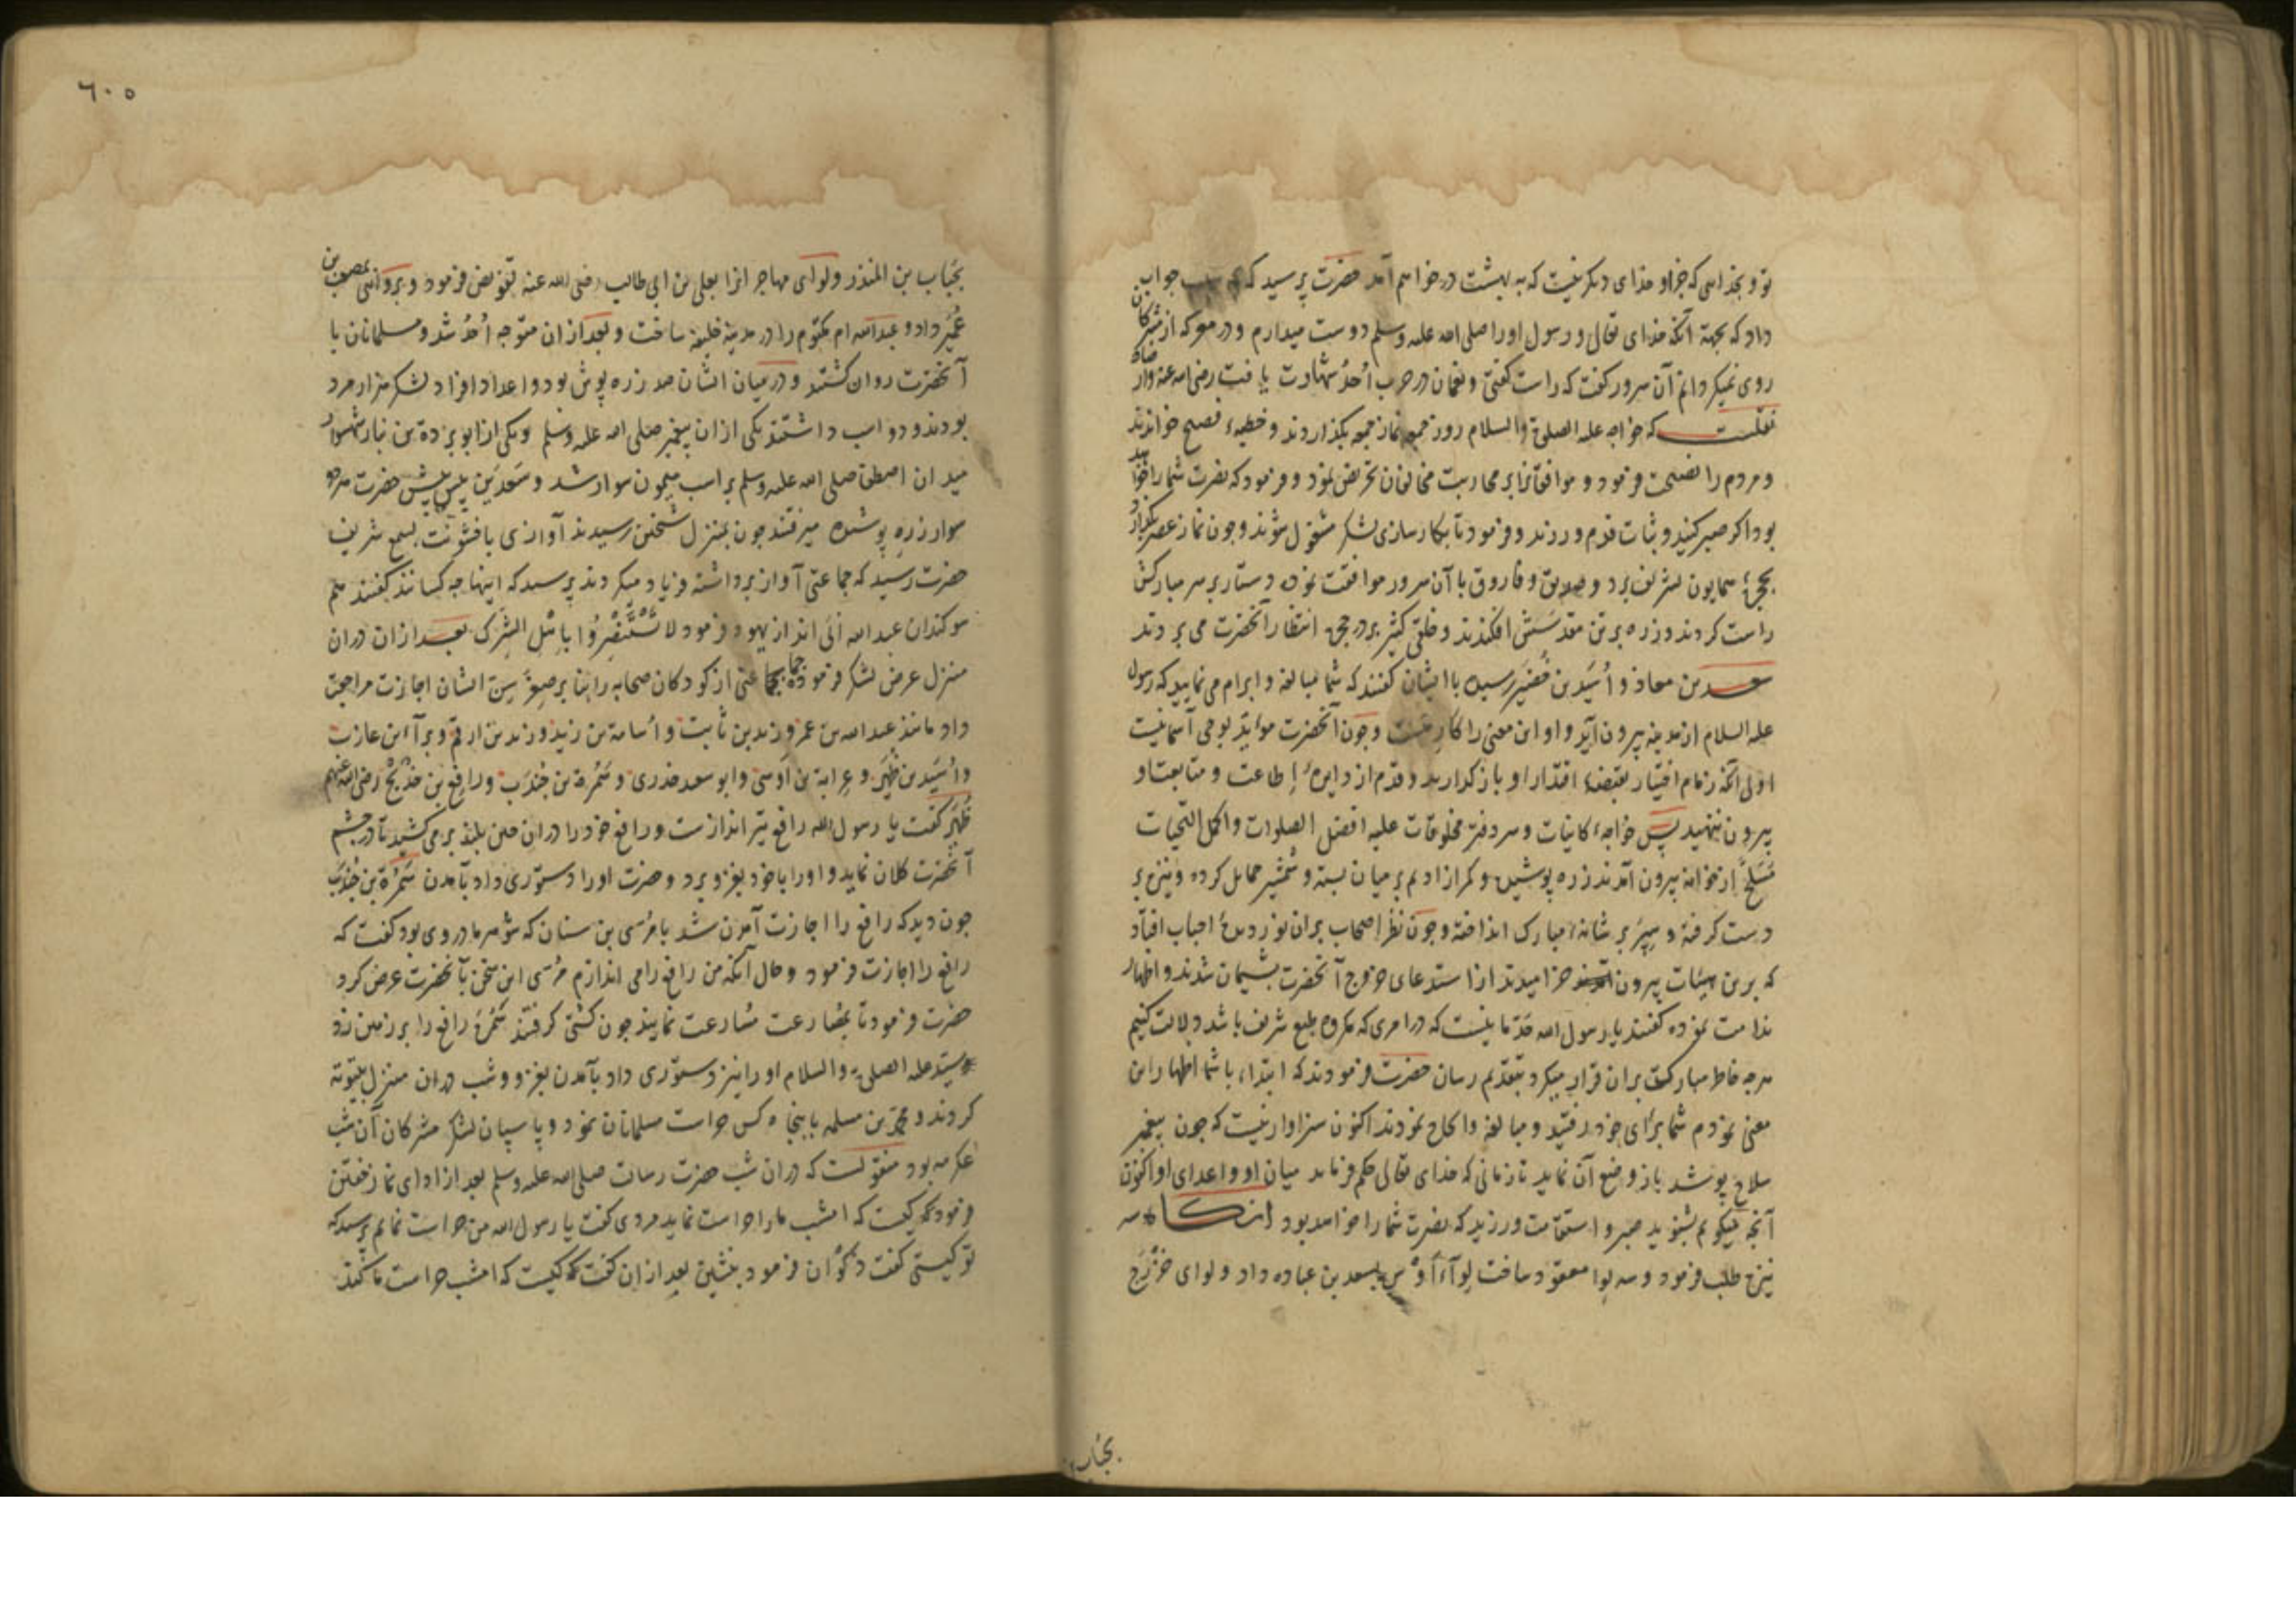 تو و بخدایی که جز او خدای دیکر نیست که به بهشت درخواهم آمد حضرت پرسید که جواب
داد که بجهة آنکه خدای تعالی و رسول او را صلی الله علیه وسلم دوست میدارم و در معرکه از مشرکان
روی نمیکردانم آن سرور کفت که راست کفتی و نعمان در حرب اُحُد شهادت یافت رضی الله عنه
نقلست که خواجه علیه الصلوة والسلام روز جمعه نماز جمعه بکذاردند و خطبهٔ فصیح خواندند
و مردم را نصیحت فرمود و موافقانرا بر محاربت مخالفان تحریض نمود و فرمود که نصرت شما را خواهد
بود اکر صبر کنید و ثبات قدم ورزند و فرمود تا بکارسازی لشکر مشغول شوند و چون نماز عصر بکذارد
بحجرهٔ همایون تشریف برد و صدیق و فاروق با آن سرور موافقت نموده دستار بر سر مبارکش
راست کردند و زره بر تن مقدسش افکندند و خلقی کثیر بر در حجره انتظار آنحضرت می بردند
سعد بن معاذ و اُسَید بن حُضَیر رسیده با ایشان کفتند که شما مبالغه و ابرام می نمایید که رسول
علیه السلام از مدینه بیرون آید و او این معنی را کاره است و چون آنحضرت مؤید بوحی آسمانیست
اولی آنکه زمام اختیار بقبضهٔ اقتدار او باز کذارید و قدم از دایرهٔ اطاعت و متابعت او
بیرون ننهید پس خواجهٔ کاینات و سر دفتر مخلوقات علیه افضل الصلوات و اکمل التحیات
مسلح از خانه بیرون آمدند زره پوشیده و کمر از ادیم بر میان بسته و شمشیر حمایل کرده و نیزه بر
دست کرفته و سپر بر شانهٔ مبارک انداخته و چون نظر اصحاب بران نور دیدهٔ احباب افتاد
که برین هیئات بیرون خرامیدند از استدعای خروج آنحضرت پشیمان شدند و اظهار
ندامت نموده کفتند یا رسول الله حد ما نیست که در امری که مکروه طبع شریف باشد دلالت کنیم
هرچه خاطر مبارکت بران قرار میکرد بتقدیم رسان حضرت فرمودند که ابتداء با شما اظهار این
معنی نمودم شما برای خود رفتید و مبالغه و الحاح نمودند اکنون سزاوار نیست که چون پیغمبر
سلاح پوشد باز وضع آن نماید تا زمانی که خدای تعالی حکم فرماید میان او و اعدای او اکنون
آنچه میکویم بشنوید صبر و استقامت ورزید که نصرت شما را خواهد بود آنکاه سه
نیزه طلب فرمود و سه لوا معقود ساخت لوآء اَوْس بسعد بن عباده داد و لوای خزرج
بحُباب
٦٠٥
بحُباب بن المنذر و لوای مهاجرانرا بعلی بن ابی طالب رضی الله عنه تفویض فرمود و بروایتی بمصعب بن
عُمَیر داد و عبدالله ام مکتوم را در مدینه خلیفه ساخت و بعد از ان متوجه اُحُد شد و مسلمانان با
آنحضرت روان کشتند و در میان ایشان صد زره پوش بود و اعداد افراد لشکر هزار مرد
بودند و دو اسب داشتند یکی از ان پیغمبر صلی الله علیه وسلم و یکی از ابو بردة بن نیار شهسوار
میدان اصطفا صلی الله علیه وسلم بر اسب میمون سوار شد و سَعدَین پیش حضرت
سوار زره پوشیده میرفتند چون بمنزل شیخین رسیدند آوازی با خشونت بسمع شریف
حضرت رسید که جماعتی آواز برداشته فریاد میکردند پرسید که اینها چه کسانند کفتند هم
سوکندان عبدالله اُبَی اند از یهود فرمود لا تَسْتَنْصِرُوا بِاَهْلِ الشِّرک بعد ازان دران
منزل عرض لشکر فرموده جماعتی از کودکان صحابه را بنا بر صِغَر سِن ایشان اجازت مراجعت
داد مانند عبدالله بن عمر و زید بن ثابت و اُسامة بن زید و زید بن ارقم و برآء بن عازب
و اُسَید بن ظُهَیر و عرابة بن اَوسی و ابو سعد خدری و سَمُرة بن جُندَب و رافع بن خَدیج رضی الله عنهم
ظُهَیر کفت یا رسول الله رافع تیر اندازست و رافع خود را دران حین بلند برمی کشید تا در چشم
آنحضرت کلان نماید و او را با خود بغزو برد و حضرت او را دستوری داد بآمدن سَمُرة بن جُندَب
چون دید که رافع را اجازت آمدن شد با مُری بن سنان که شوهر مادر وی بود کفت که
رافع را اجازت فرمود و حال آنکه من رافع را می اندازم مُری این سخن بآنحضرت عرض کرد
حضرت فرمود تا بمصارعت مسارعت نمایند چون کشتی کرفتند سَمُرَه رافع را بر زمین زد
سید علیه الصلوة والسلام او را نیز دستوری داد بآمدن بغزو و شب دران منزل بیتوته
کردند و محمد بن مسلمه با پنجاه کس حراست مسلمانان نمود و پاسبان لشکر مشرکان آن شب
عکرمه بود منقولست که دران شب حضرت رسالت صلی الله علیه وسلم بعد از ادای نماز خفتن
فرمود که کیست که امشب ما را حراست نماید مردی کفت یا رسول الله من حراست نمایم پرسید که
تو کیستی کفت ذَکْوان فرمود بنشین بعد ازان کفت که کیست که امشب حراست ما کند